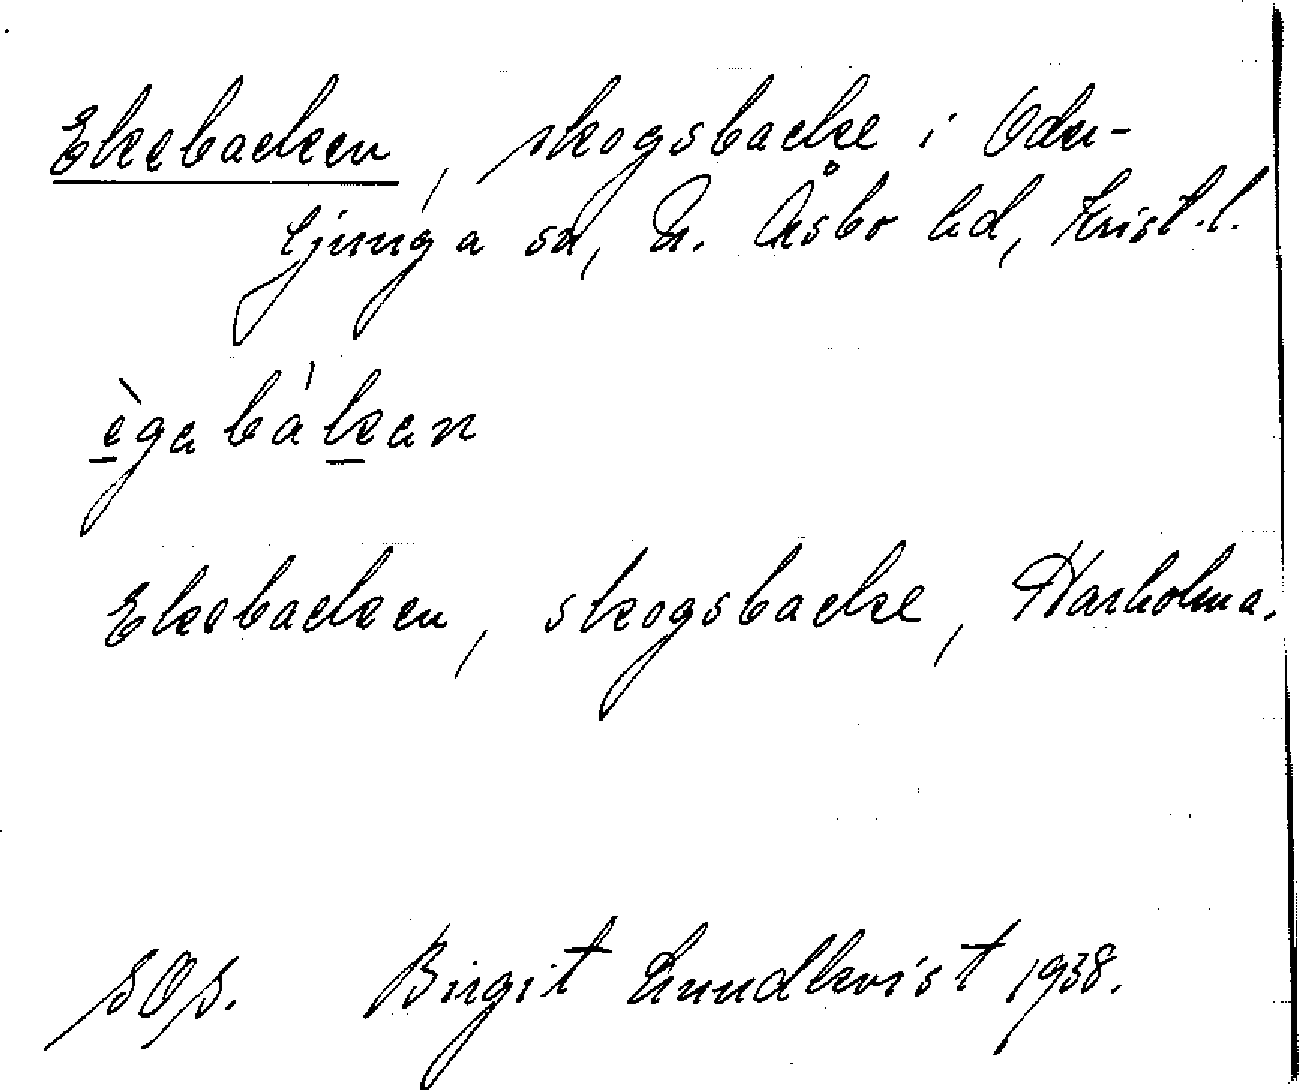 Ekebacken, skogsbacke i Oder-
ljunga sn, N. Åsbo hd, Krist. l.
ègabákan
Ekebacken, skogsbacke, Harholma.
SOS. Birgit Lundkvist 1938.